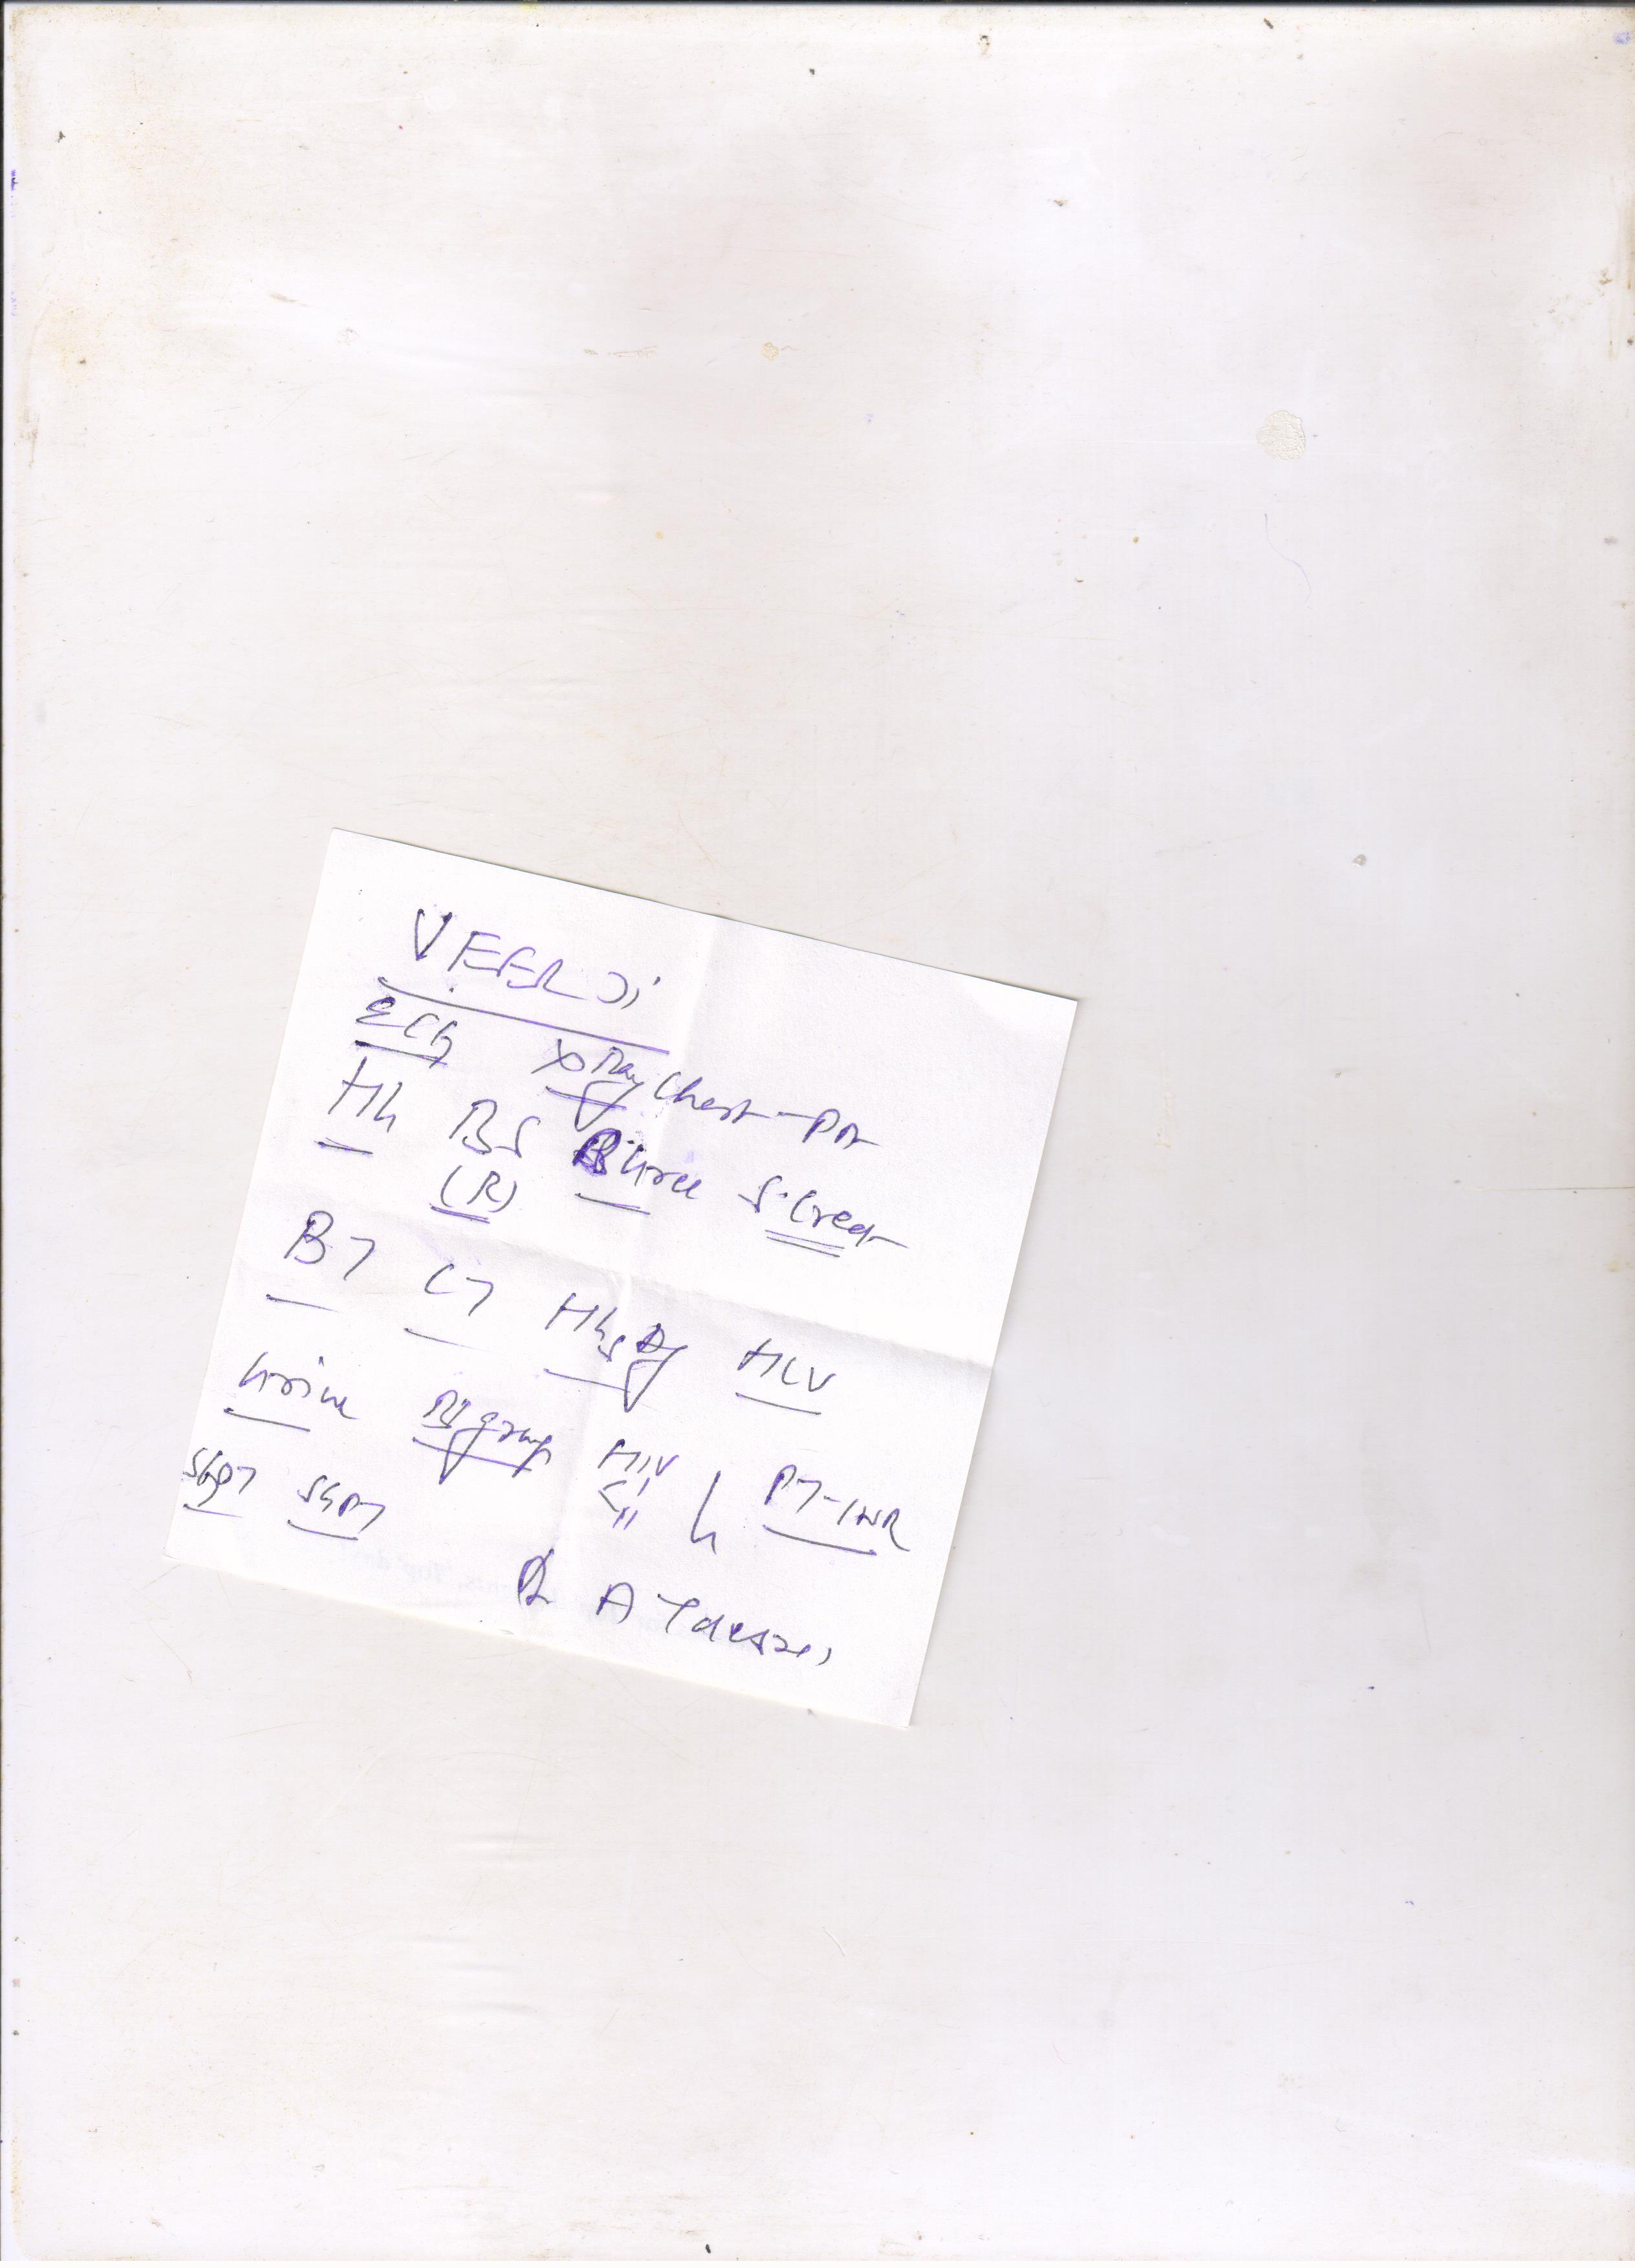 VEERJi
ECG X Ray Chest - PA
Hb BS B Urea S. Creat
(R)
BT CT HbsAg HCV
Urine Bl group HIV PT-INR
I, II
SGOT SGPT
Dr A